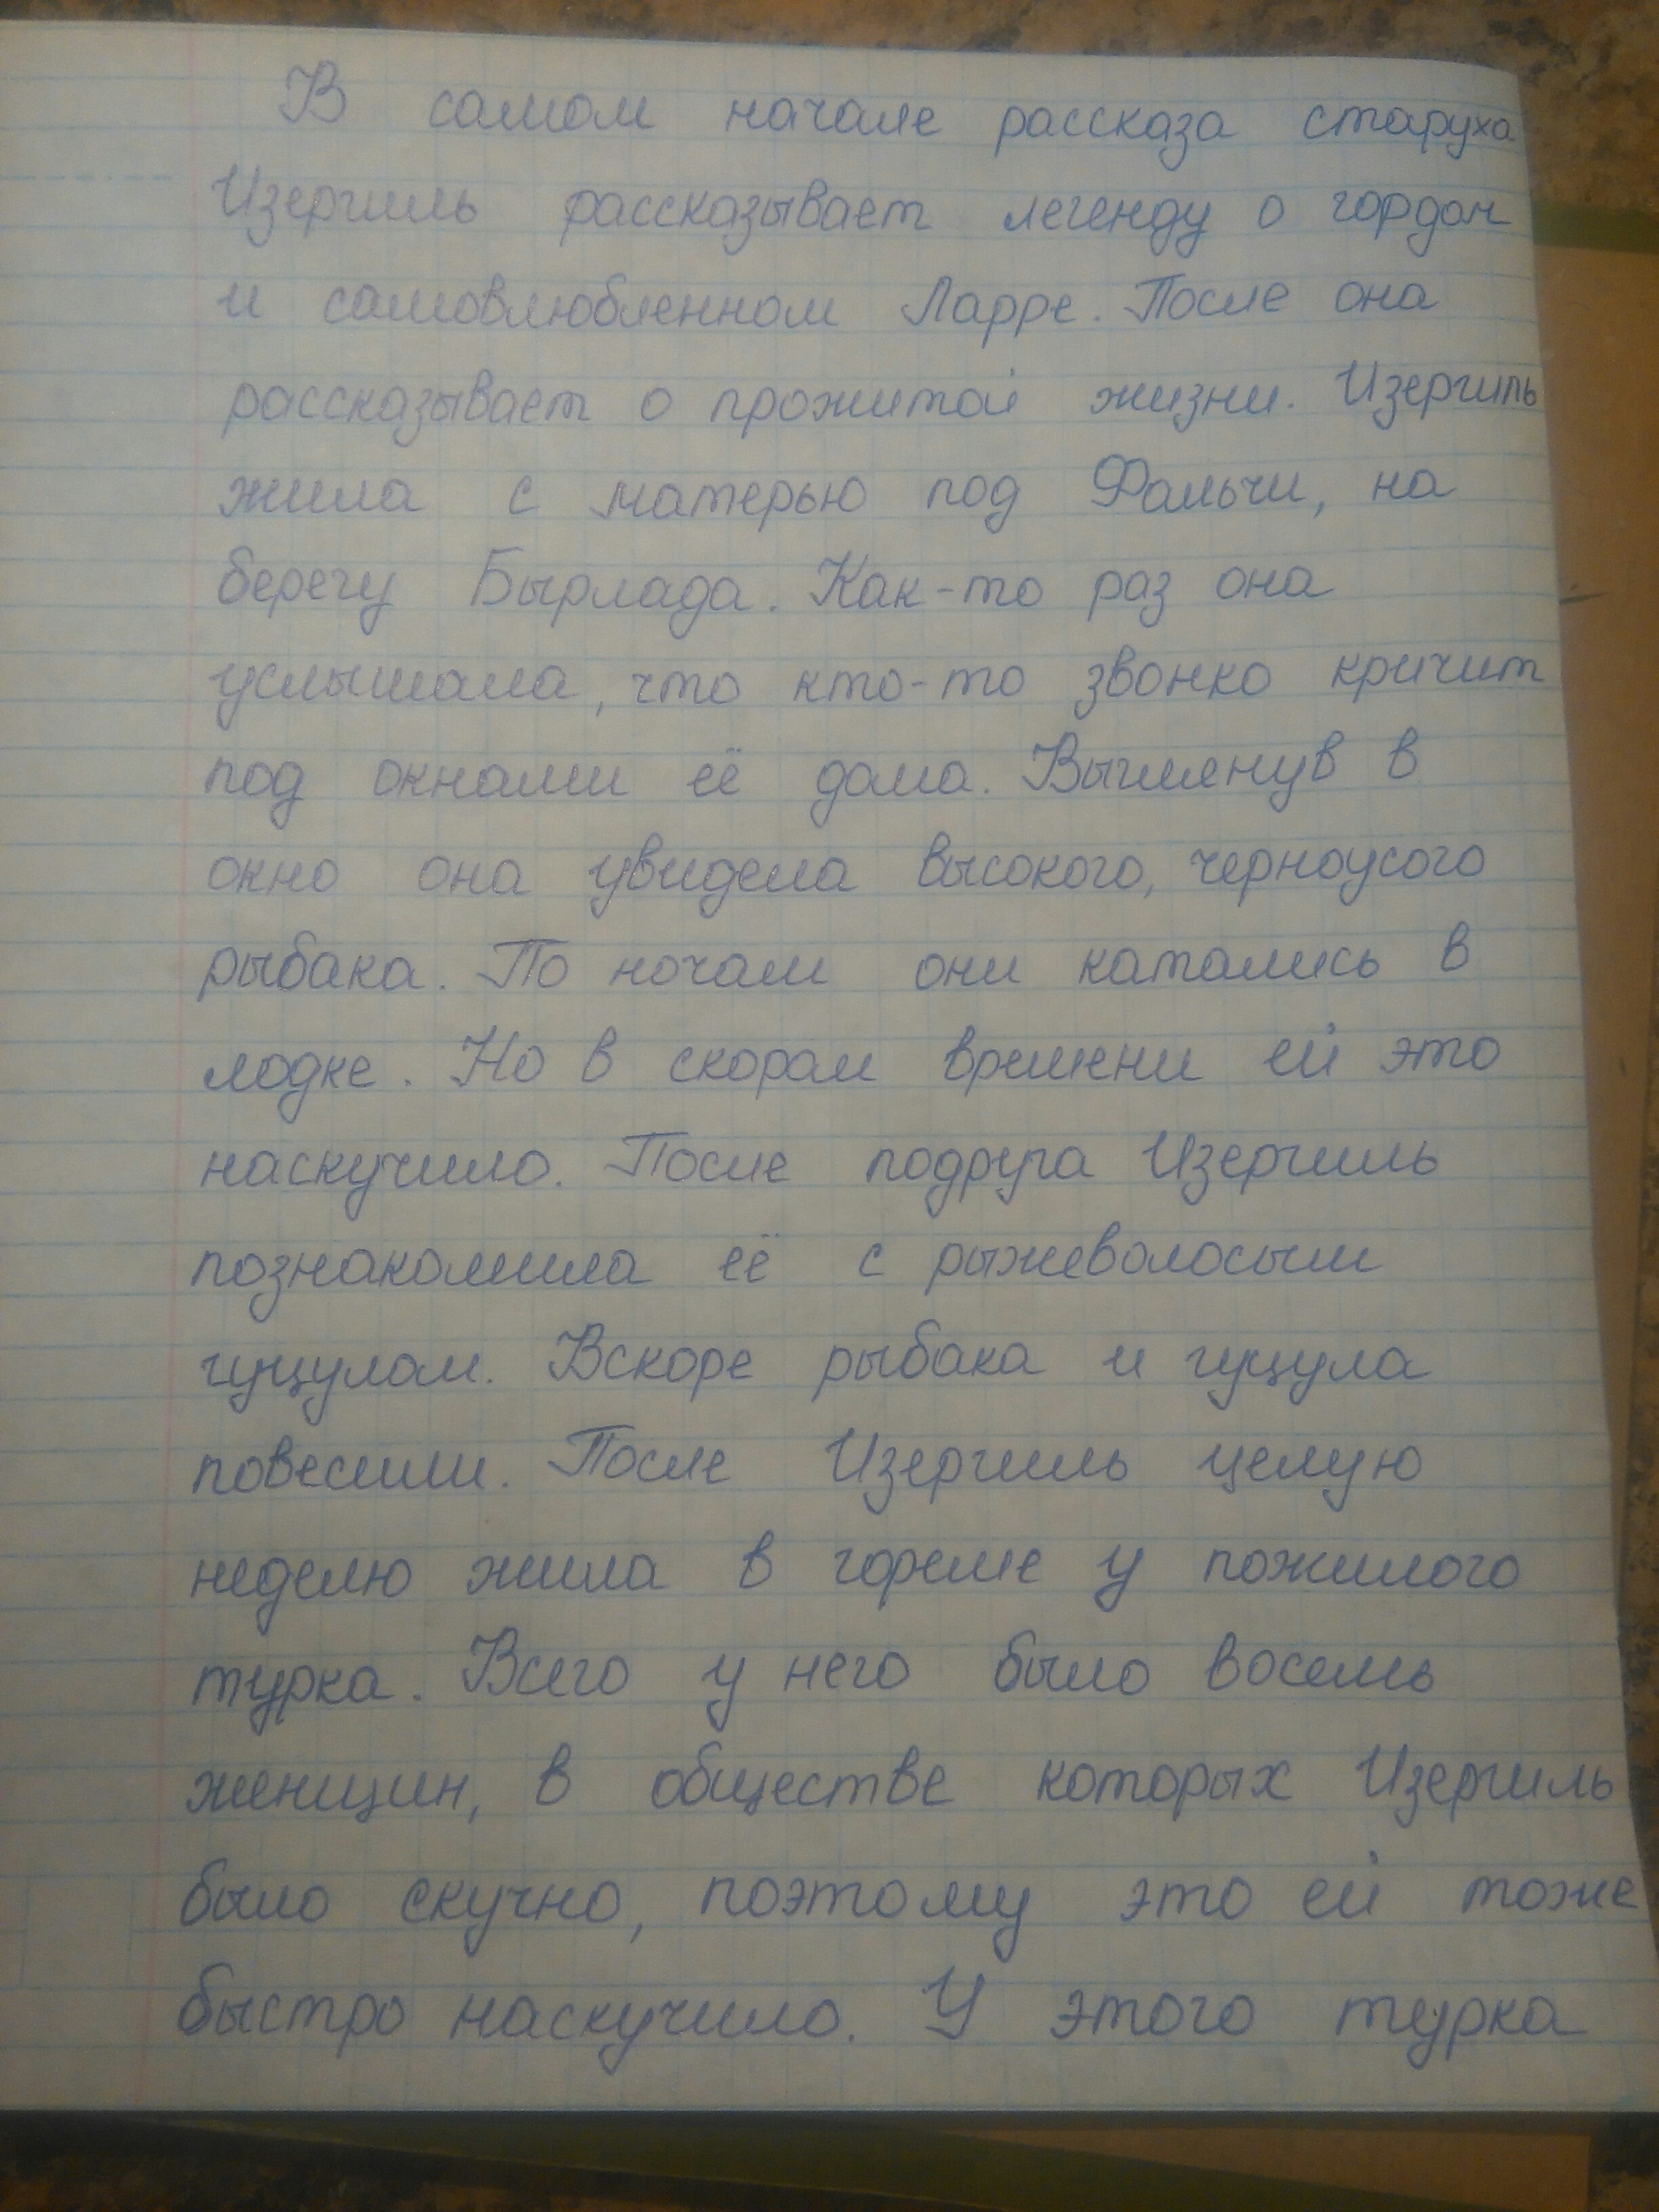 В самом начале рассказа старуха
Изергиль рассказывает легенду о гордом
и самовлюбленном Ларре. После она
рассказывает о прожитой жизни. Изергиль
жила с матерью под Фальчи, на
берегу Бырлада. Как-то раз она
услышала, что кто-то звонко кричит
под окнами её дома. Выглянув в
окно она увидела высокого, черноусого
рыбака. По ночам они катались в
лодке. Но в скором времени ей это
наскучило. После подруга Изергиль
познакомила её с рыжеволосым
гуцулом. Вскоре рыбака и гуцула
повесили. После Изергиль целую
неделю жила в гореме у пожилого
турка. Всего у него было восемь
женщин, в обществе которых Изергиль
было скучно, поэтому это ей тоже
быстро наскучило. У этого турка